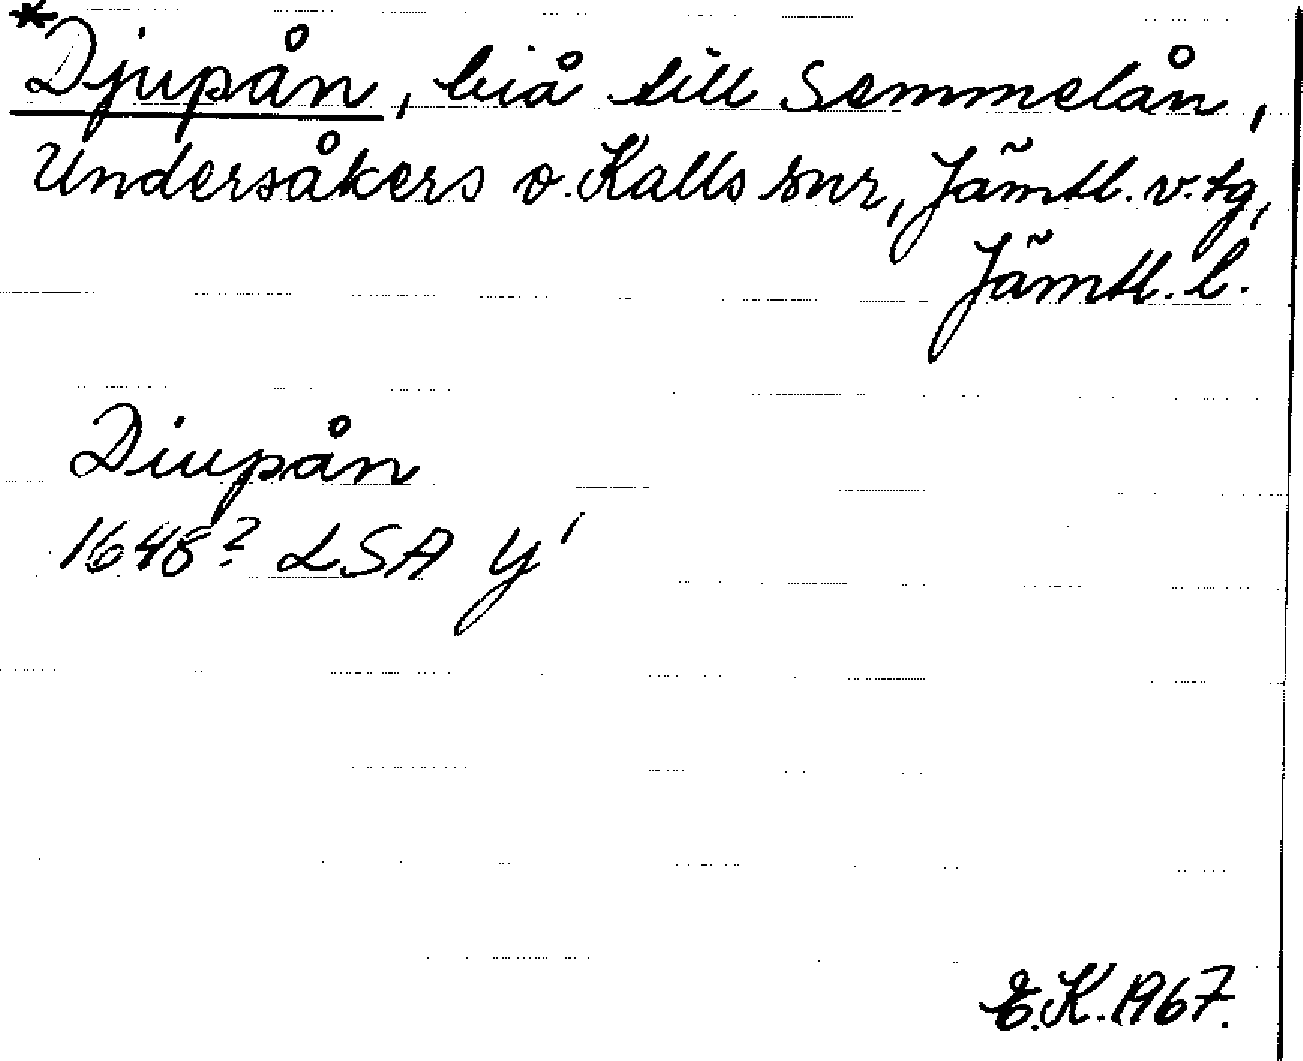 *Djupån, biå till Semmelån,
Undersåkers o. Kalls snr, Jämtl. v. tg,
Jämtl. l.
Diupån
1648? LSA Y'
E.K. 1967.